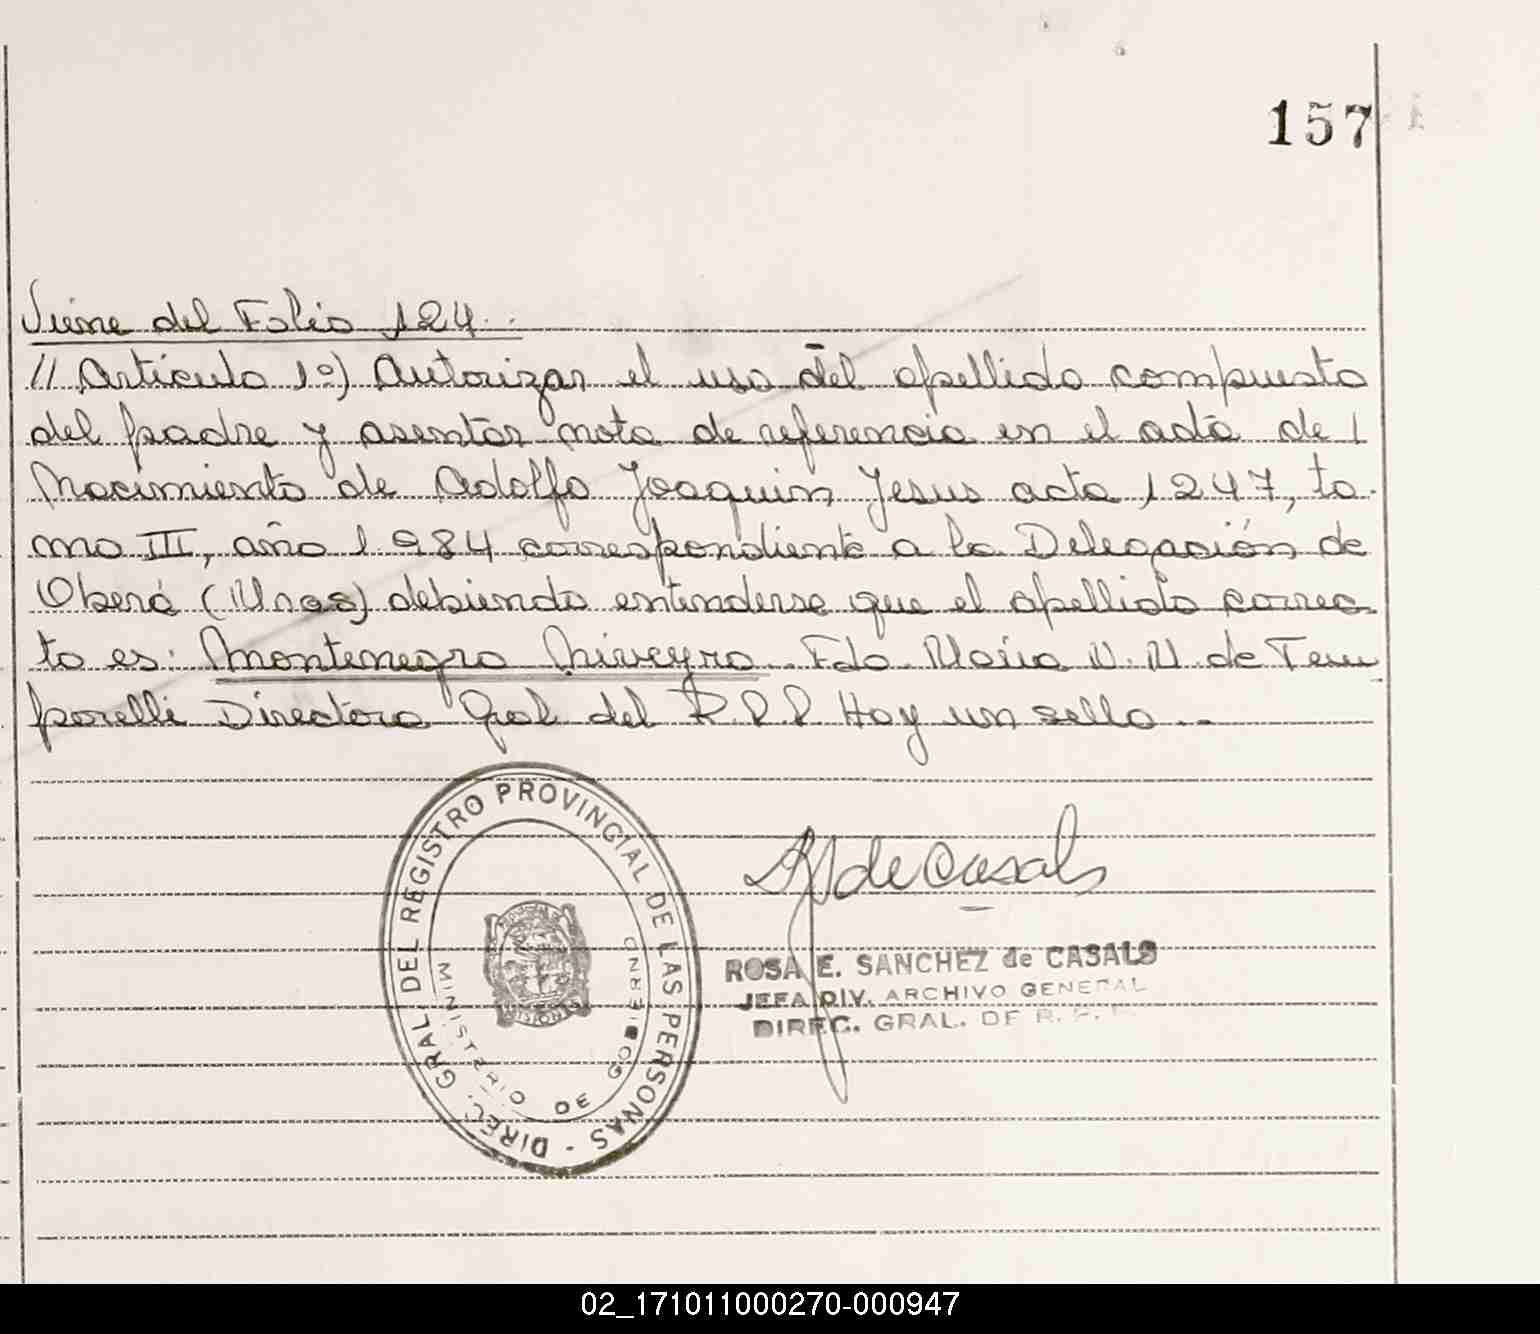 157
Viene del Folio 124.
// Artículo 1º) Autorizar el uso del apellido compuesto
del padre y asentar nota de referencia en el acta de /
Nacimiento de Adolfo Joaquin Jesus acta 1247, to-
mo III, año 1984 correspondiente a la Delegación de
Oberá (Mnes) debiendo entenderse que el apellido correc-
to es: Montenegro Niveyro. Fdo. María N. N. de Tem
porelli Directora Gral del R.P.P Hay un sello.-
DIREC. GRAL. DEL REGISTRO PROVINCIAL DE LAS PERSONAS -
MINISTERIO DE GOBIERNO
MISIONES
de Casals
ROSA E. SANCHEZ de CASALS
JEFA DIV. ARCHIVO GENERAL
DIREC. GRAL. DE R. P.
02_171011000270-000947